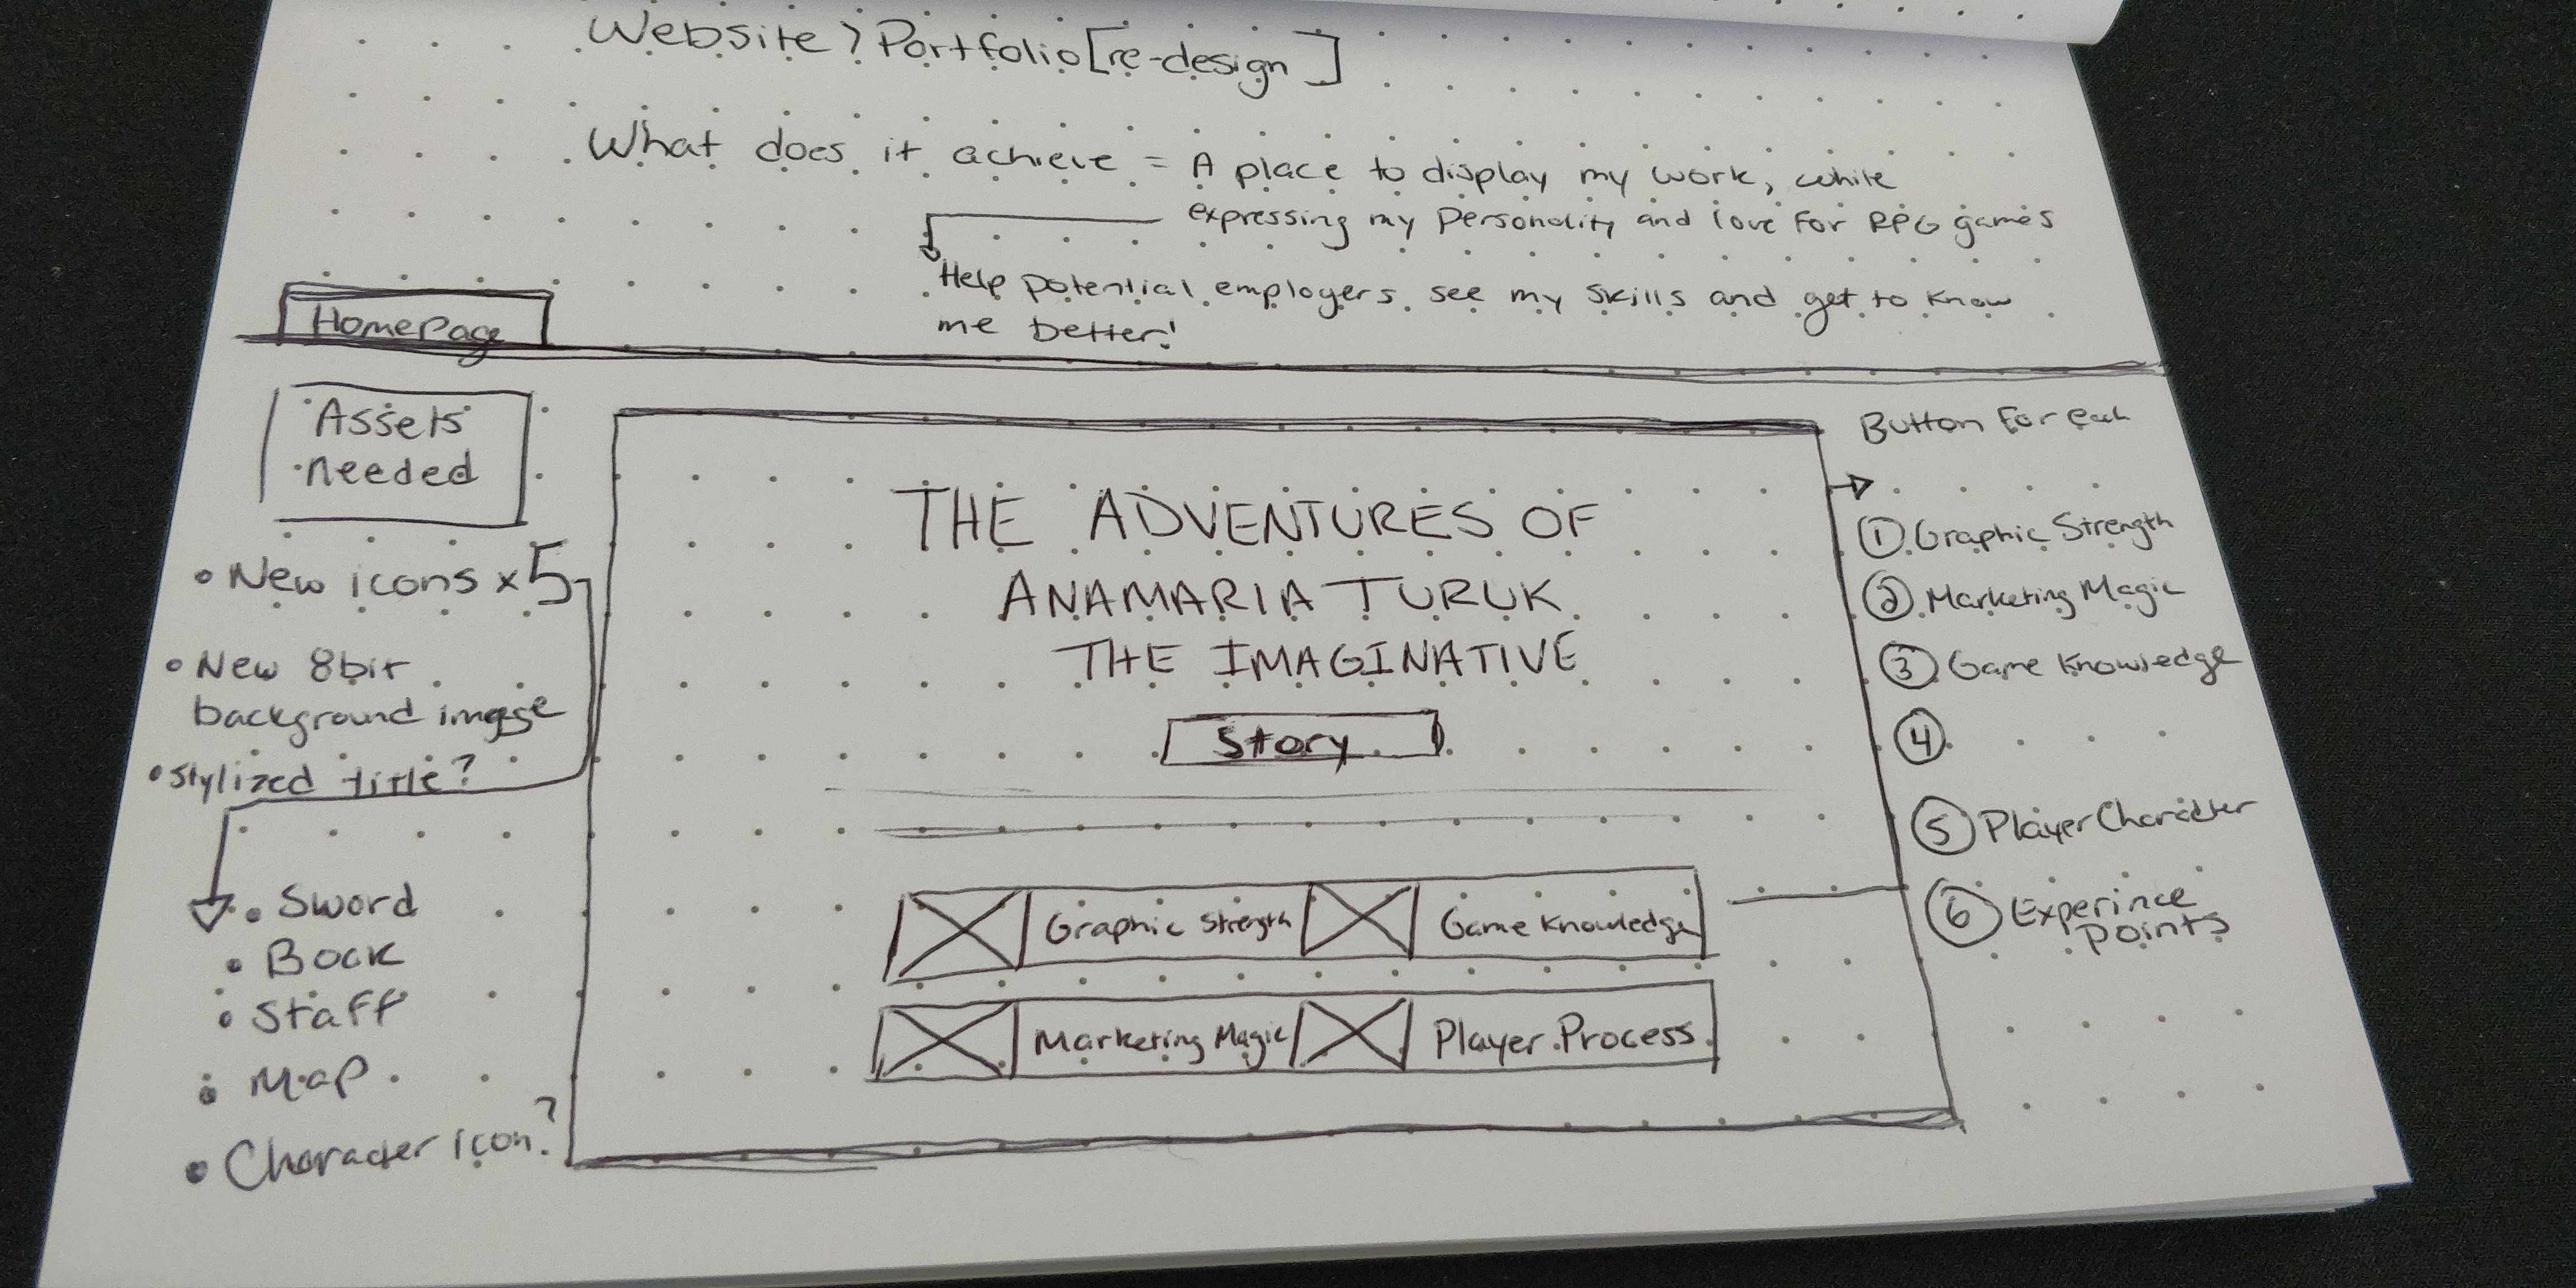 Website > Portfolio [re-design]
What does it achieve = A place to display my work, while
expressing my personality and love for RPG games
Help potential employers see my skills and get to know
me better!
HomePage
Assets
needed
• New icons x5
• New 8bit
background image
• Stylized title?
• Sword
• Book
• Staff
• Map
• Character icon?
THE ADVENTURES OF
ANAMARIA TURUK
THE IMAGINATIVE
Story
Graphic Strength
Game Knowledge
Marketing Magic
Player Process
Button For Each
① Graphic Strength
② Marketing Magic
③ Game Knowledge
④
⑤ Player Character
⑥ Experince
Points